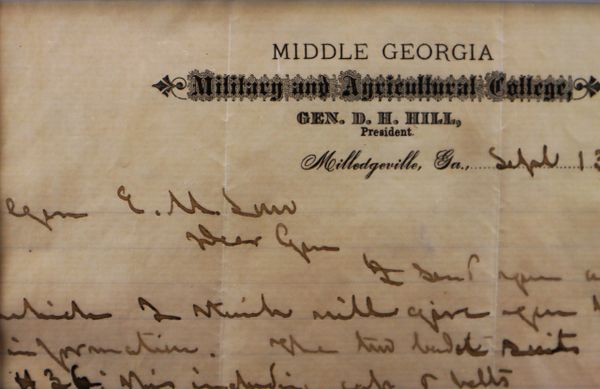 MIDDLE GEORGIA
Military and Agricultural College,
GEN. D. H. HILL,
President.
Milledgeville, Ga., Sept 13
E. M. Law
Dear Gen
I send you a
which I think will give you
information. The two best suits
$36. This includes cap & belts